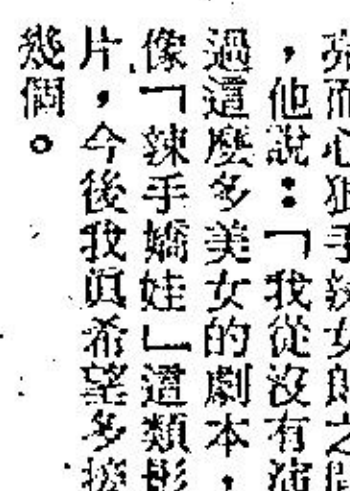 亮而心狠手辣女郎之間
，他說：「我從沒有演
過這麼多美女的劇本，
像「辣手嬌娃」這類影
片，今後我眞希望多接
幾個。